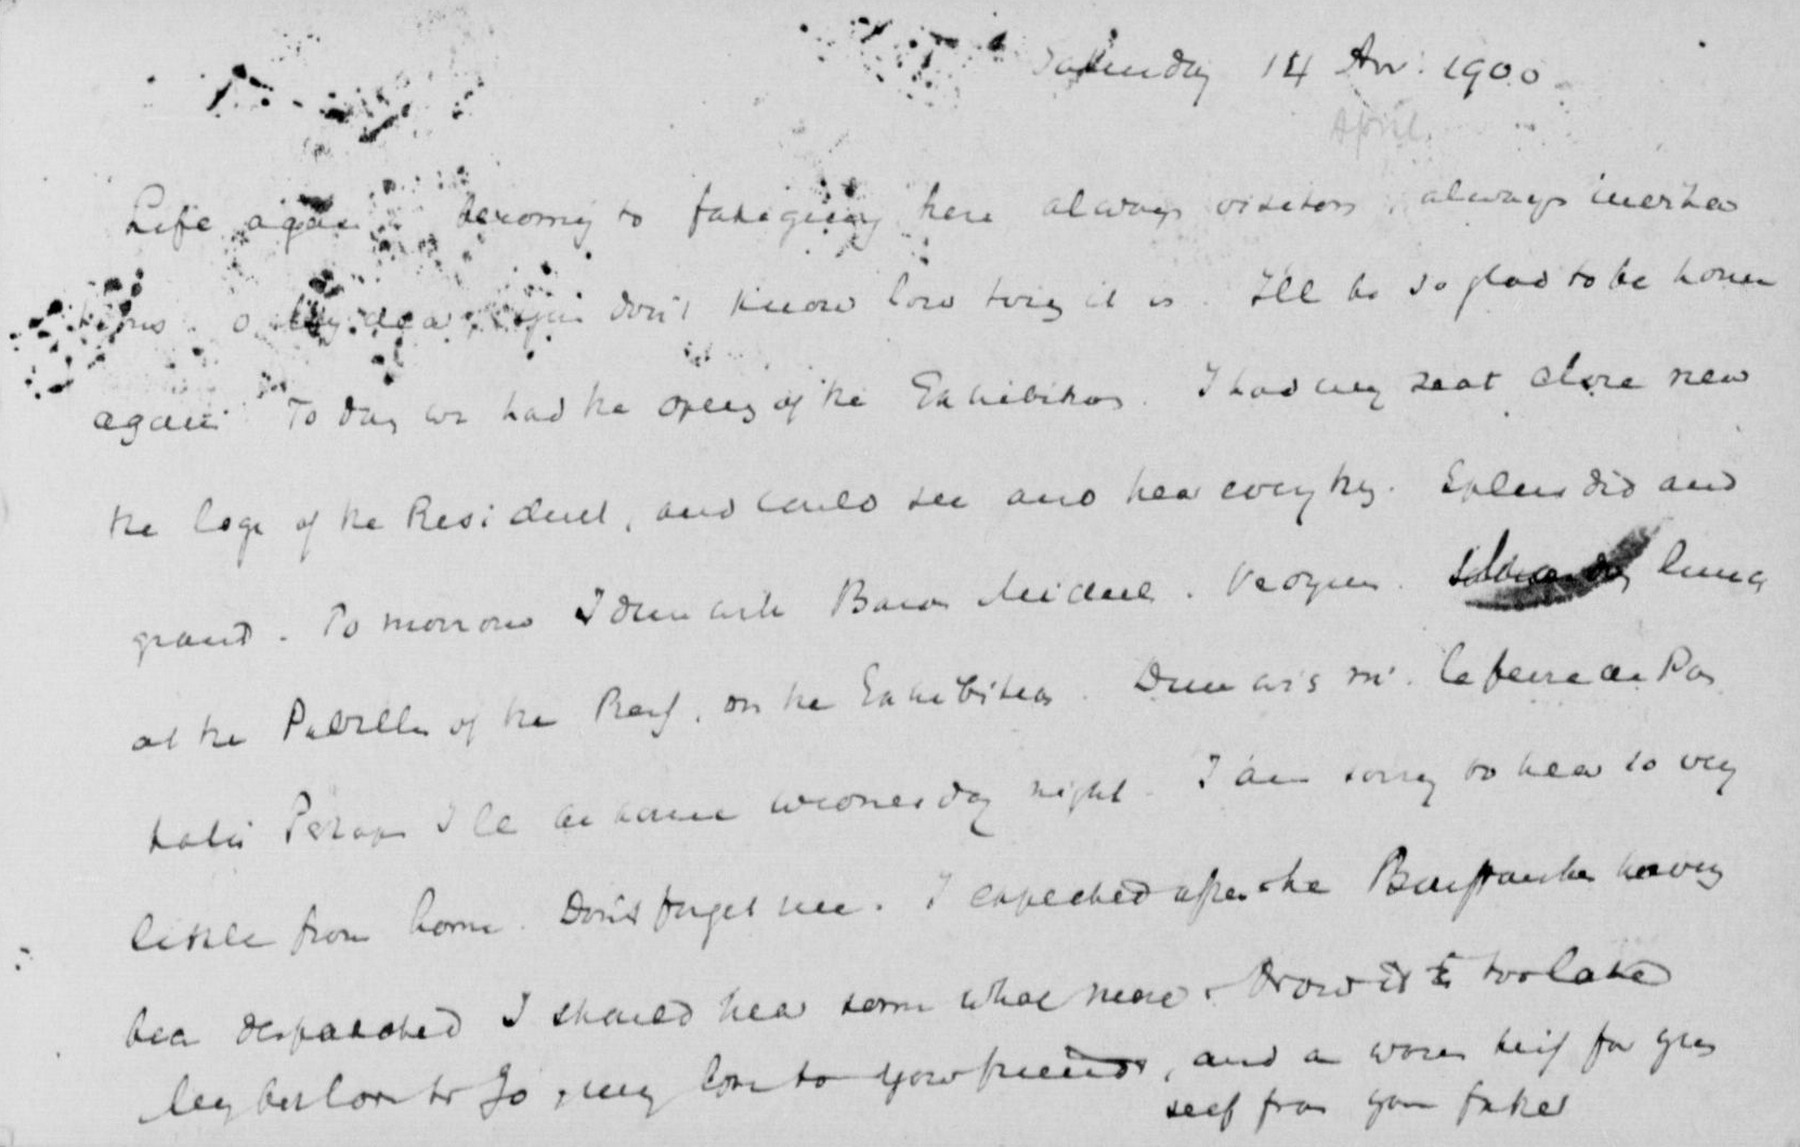 Saturday 14 Avr. 1900
April
Life again becoming to fatigueing here always visitors, always invita
tions. O my dear, you don't know how tiring it is. I'll be so glad to be home
again. To day we had the opening of the Exhibition. I had my seat close near
the loge of the President, and could see and hear everything. Splendid and
grand. To morrow I dine with Baron Michel. lunch
at the Pavillon of the on the Exhibition. Dine with Mr. Lefevre de
Perhaps I'll be home wednesday night. I am sorry to hear so very
little from home. Don't forget me. I expected after the having
been despatched I should hear some what more. Now it is too late
My best love to Jo, my love to your friends, and a warm kiss for your
self from your father